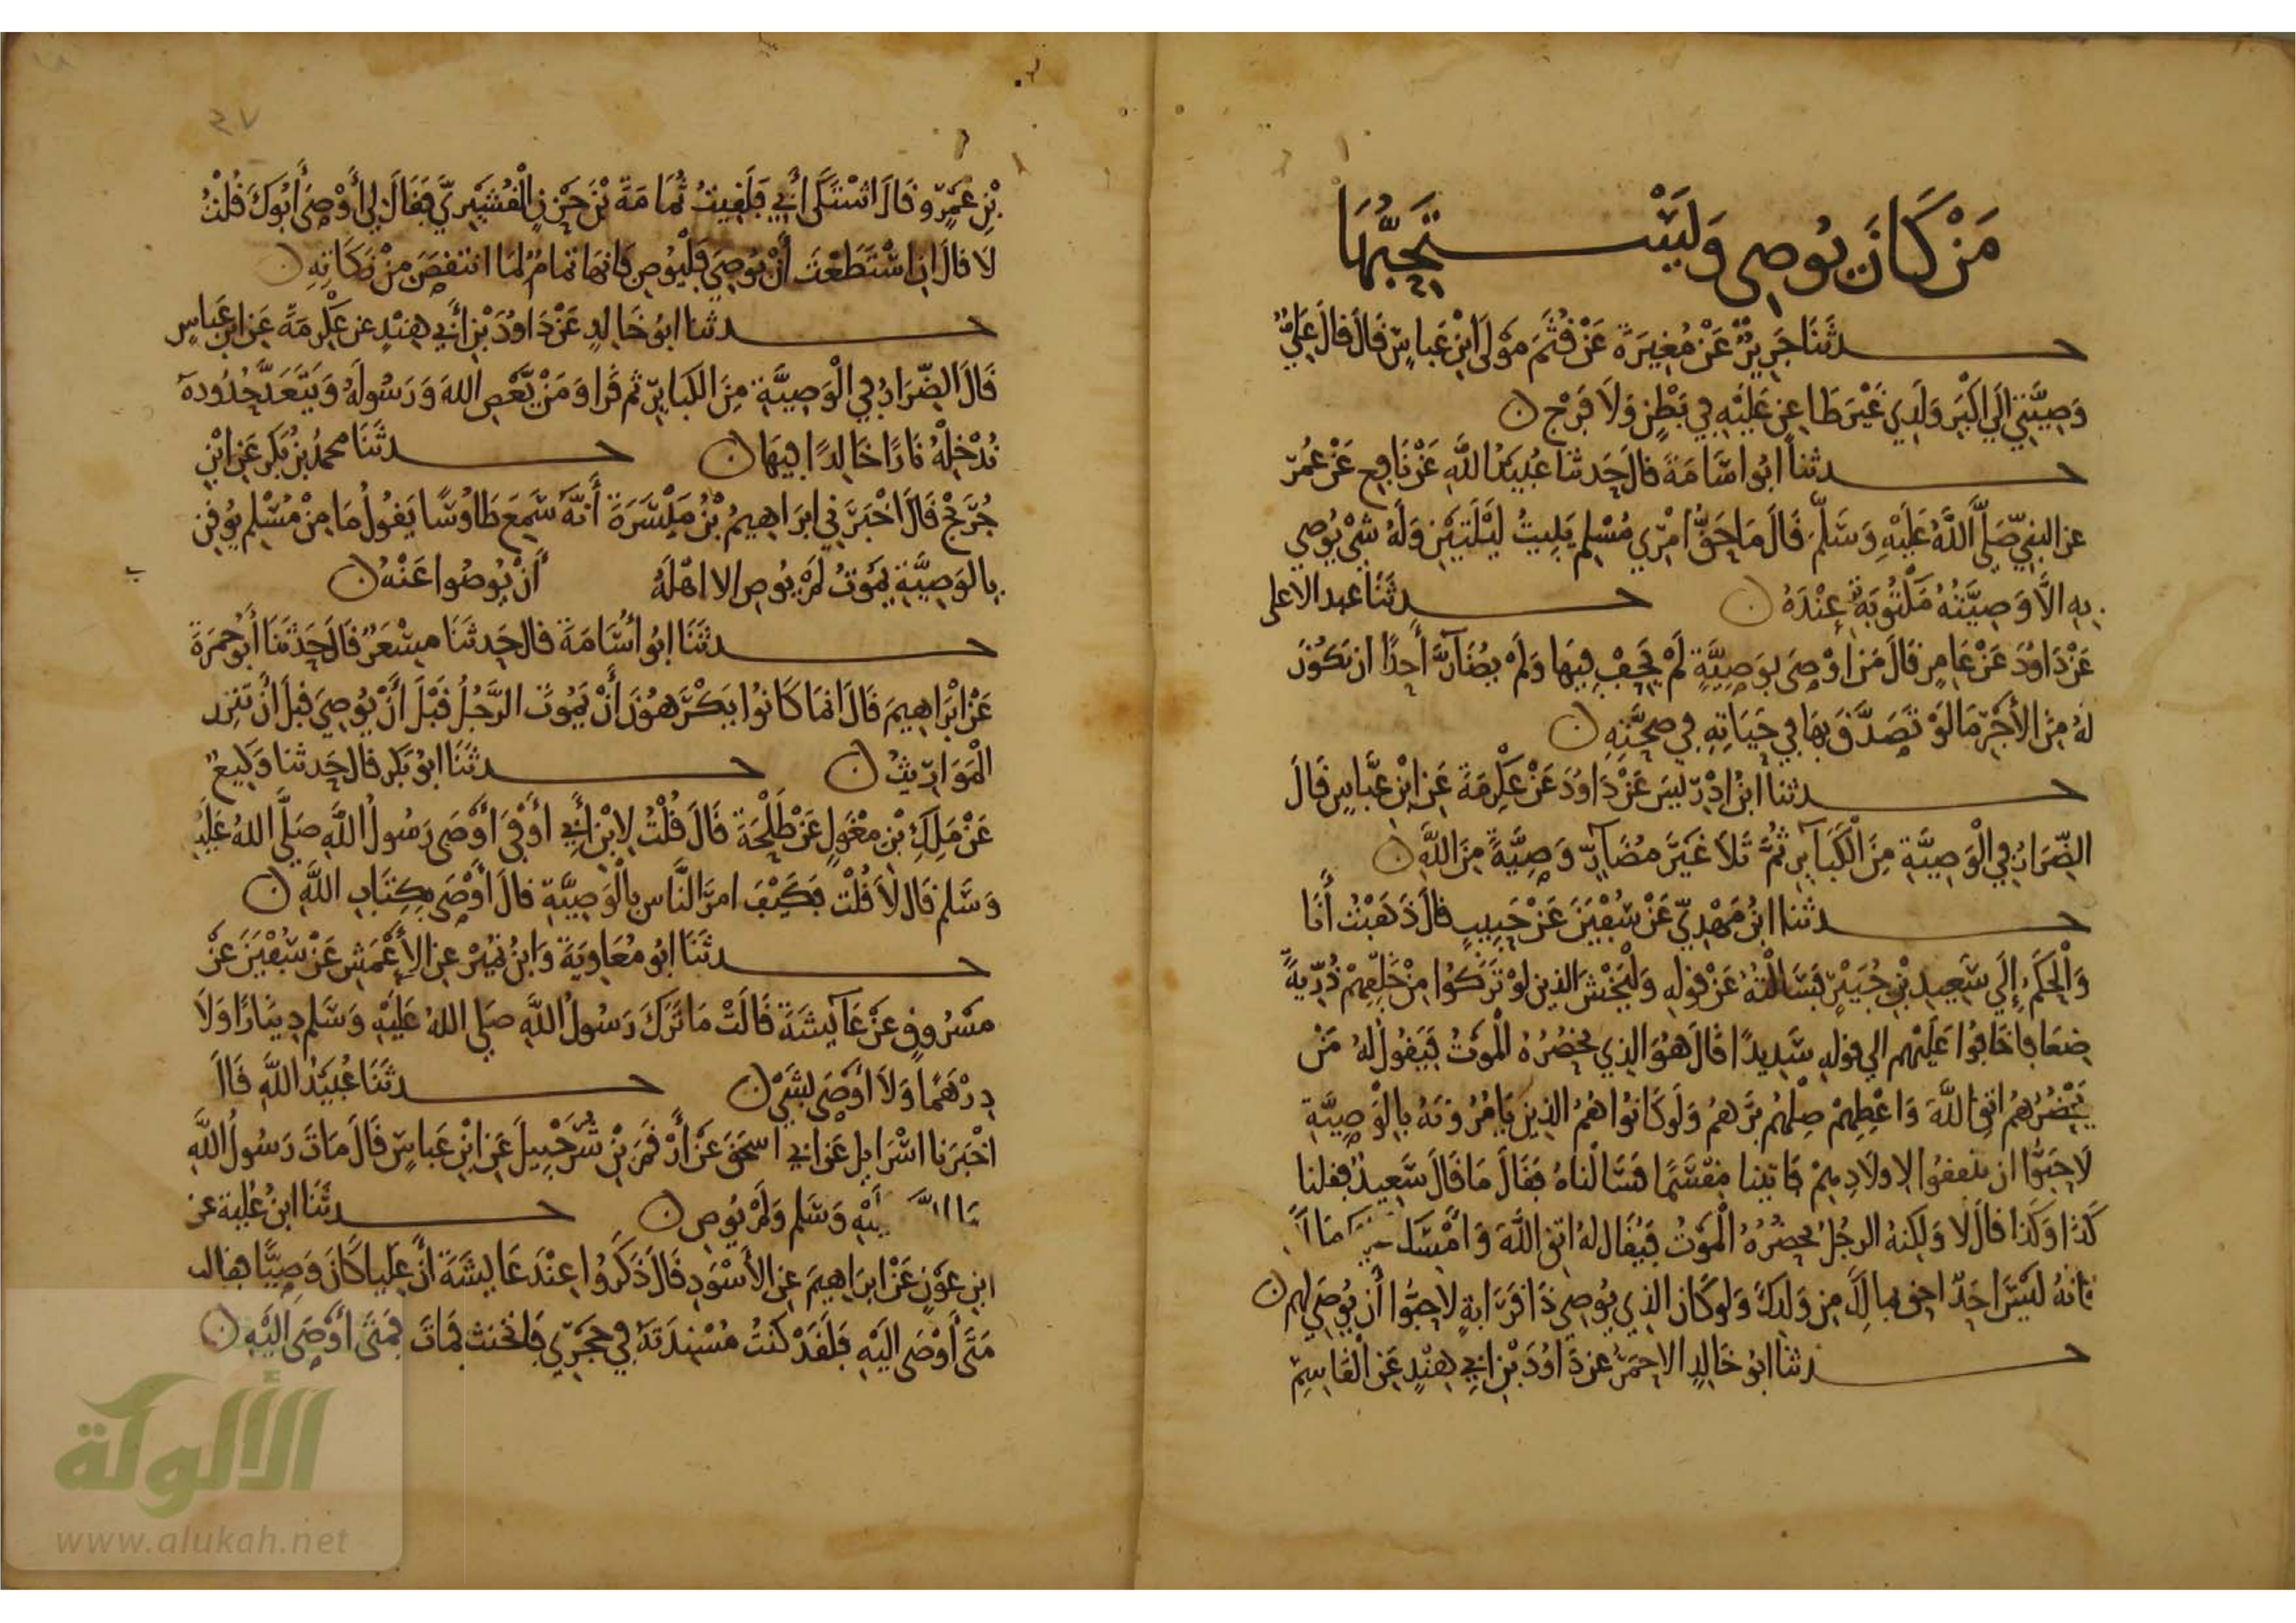 مَنْ كَانَ يُوصِى وَيَسْتَحِبُّهَا
حدثَنَا جَرِيرٌ عَنْ مُغِيرَةَ عَنْ قُثَمَ مَوْلَى ابْنِ عَبَاسٍ قَالَ قَالَ عَلِيٌّ
وَصِيَّتِي الَى اكْبَرِ وَلَدِي غَيْرَ طَاعِنٍ عَلَيْهِ فِي بَطْنٍ وَلَا فَرْجٍ ن
حدثنا ابُو اسَامَةَ قَالَ حَدثنا عُبَيْدُ اللَّهِ عَنْ نَافِعٍ عَنْ عُمَرَ
عن النبيِّ صَلَّى اللَّهُ عَلَيْهِ وَسَلَّمَ قَالَ مَا حَقُّ امْرِيٍ مُسْلِمٍ يَبِيتُ لَيْلَتَيْنِ وَلَهُ شَيْ يُوصِي
بِهِ الَّا وَصِيَّتُهُ مَكْتُوبَةٌ عِنْدَهُ ن حدثَنَا عبد الاعلى
عَنْ دَاوُدَ عَنْ عَامِرٍ قَالَ مَنْ أَوْصَى بِوَصِيَّةٍ لَمْ يَحِفْ فِيهَا وَلَمْ يُضَآرَّ أَحَدًا ان يَكُوْنَ
لَهُ مِنَ الأَجْرِ مَا لَوْ تَصَدَّقَ بِهَا فِي حَيَاتِهِ فِي صِحَّتِهِ ن
حدثنا ابنُ ادْرِيسَ عَنْ دَاوُدَ عَنْ عِكْرِمَةَ عَنِ ابْنِ عَبَّاسٍ قَالَ
الضِّرَارُ فِي الْوَصِيَّةِ مِنَ الْكَبَآيِرِ ثُمَّ تَلَا غَيْرَ مُضَآرٍّ وَصِيَّةً مِنَ اللَّهِ ن
حدثنا ابنُ مَهْدِيّ عَنْ سُفْيَنَ عَنْ حَبِيبٍ قَالَ ذَهَبْتُ أَنَا
وَالْحَكَمُ إِلَى سَعِيدِ بْنِ جُبَيْرٍ فَسَالْتُهُ عَنْ قولِهِ وَلْيَخْشَ الذين لَوْ تَرَكُوا مِنْ خَلْفِهِمْ ذُرِّيةً
ضِعَافا خَافُوا عَلَيْهِم الى قولِهِ سَدِيدًا قَالَ هُوَ الذِي يَحْضُرُهُ الْمَوتُ فَيَقُولُ لَهُ مَنْ
يَحْضُرُهُم اتقِ اللَّهَ وَاعْطِهِمْ صِلْهُم بَرَّهم وَلَو كَانُوا هُمُ الذِينَ يَامُرُونَهُ بِالْوَصِيَّةِ
لَاحَبُّوا ان ينفقُوا لاولَادِهِمْ فَاتينا مِقْسَمًا فَسَالْنَاهُ فَقَالَ مَا قَالَ سَعِيدٌ فقلنا
كَذَا وَكَذا قَالَ لَا وَلَكِنهُ الرجُلُ يَحضُرُهُ الْمَوْتُ فَيُقَال لهُ اتقِ اللَّهَ وَامْسِكْ
فَانهُ لَيْسَ احَدٌ احق بمالِكَ مِن وَلَدِكَ وَلو كَانَ الذِي يُوصِي ذَا قَرَابةٍ لاحَبُّوا أن يُوصِيَ لهم ن
حدثنا ابُو خَالِدٍ الاحمَرُ عن دَاوُدَ بْنِ ابِي هِنْدٍ عَنِ الْقَاسِمِ
٣٧
بْنِ عَمْرٍو قَالَ اشْتَكَى أَبِي فَلَقِيتُ ثُمَامَةَ بْنَ حَزْنٍ الْقُشَيْرِيَّ فَقَالَ لِي أَوْصَى أَبُوكَ قُلْتُ
لَا قالَ انِ اسْتَطَعْتَ أَنْ يُوصِيَ فَلْيُوصِ فَانهَا تمامٌ لِمَا انْتَقَصَ مِنْ زَكَاتِهِ ن
حدثنا ابُو خَالدٍ عَنْ دَاوُدَ بْنِ أَبِي هِنْدٍ عن عِكْرِمَةَ عَن ابنِ عَبَاسٍ
قَالَ الضِّرَارُ فِي الْوَصِيَّةِ مِنَ الكَبَايرِ ثم قَرَا وَمَنْ يَّعْصِ اللهَ وَرَسُولَهُ وَيَتَعَدَّ حُدُودَهُ
نُدْخِلْهُ نَارًا خَالِدًا فِيهَا ن حدثَنَا محمدُ بنُ بَكرٍ عَنِ ابْنِ
جُرَيْجٍ قَالَ اخْبَرَنِي ابرَاهِيمُ بْنُ مَيْسَرَةَ أَنَّهُ سَمِعَ طَاوُسًا يَقُولُ مَا مِنْ مُسْلِمٍ يُوقِنُ
بِالوَصِيَّةِ يَمُوتُ لَمْ يُوصِ الا اهْلُهُ أَنْ يُوصُوا عَنْهُ ن
حدثَنَا ابُو أُسَامَةَ قَال حَدثَنَا مِسْعَرٌ قَالَ حَدثَنَا أَبُو حَمزَةَ
عَنْ ابْرَاهِيمَ قَالَ انمَا كَانُوا يَكْرَهُونَ أَنْ يَمُوتَ الرَّجُلُ قَبْلَ أَنْ يُوصِيَ قبلَ أَنْ تَنزِلَ
الْمَوَارِيثُ ن حدثَنَا ابُو بَكرٍ قَال حَدثنا وَكِيعٌ
عَنْ مَلِكِ بْنِ مِغْوَلٍ عَنْ طَلْحَةَ قَالَ قُلْتُ لِابْنِ أَبِي أَوْفَى أَوْصَى رَسُولُ اللَّهِ صَلَّى اللهُ عَلَيْهِ
وَسَلم قَالَ لَا قُلْتُ فَكَيْفَ امرَ النَّاس بِالْوَصِيَّةِ قالَ أَوْصَى بِكِتَابِ اللَّهِ ن
حدثَنَا ابُو مُعَاوِيَةَ وَابنُ نُمَيْرٍ عنِ الأَعْمَشِ عَنْ سُفْيَنَ عَنْ
مَسْرُوقٍ عَنْ عَآيشَةَ قَالَتْ مَا تَرَكَ رَسُولُ اللَّهِ صَلى اللهُ عَلَيْهِ وَسَلم دِينَارًا وَلَا
دِرْهَمًا وَلَا أَوْصَى بِشَيْ ن حدثَنَا عُبَيْدُ اللَّهِ قَالَ
اخْبَرَنا اسْرَايل عَن ابي اسحَقَ عَنْ أَرْقَمَ بْنِ شُرَحْبِيلَ عَنِ ابْنِ عَبَاسٍ قَالَ مَاتَ رَسُولُ اللَّهِ
وَسَلم وَلَمْ يُوصِ ن حدثَنَا ابنُ عُلَية عن
ابنِ عَوْنٍ عَنْ ابرَاهِيمَ عنِ الأَسْوَدِ قَالَ ذَكَرُوا عِنْدَ عَايشَةَ أَنَّ عَلِيا كَانَ وَصِيًّا فقالت
مَتَى أَوْصَى الَيْهِ فَلَقَدْ كُنْتُ مُسْنِدَتَهُ فِي حَجْرِي فَانخنث فمَاتَ فَمَتَى أَوْصَى الَيْهِ ن
الألوكة
www.alukah.net